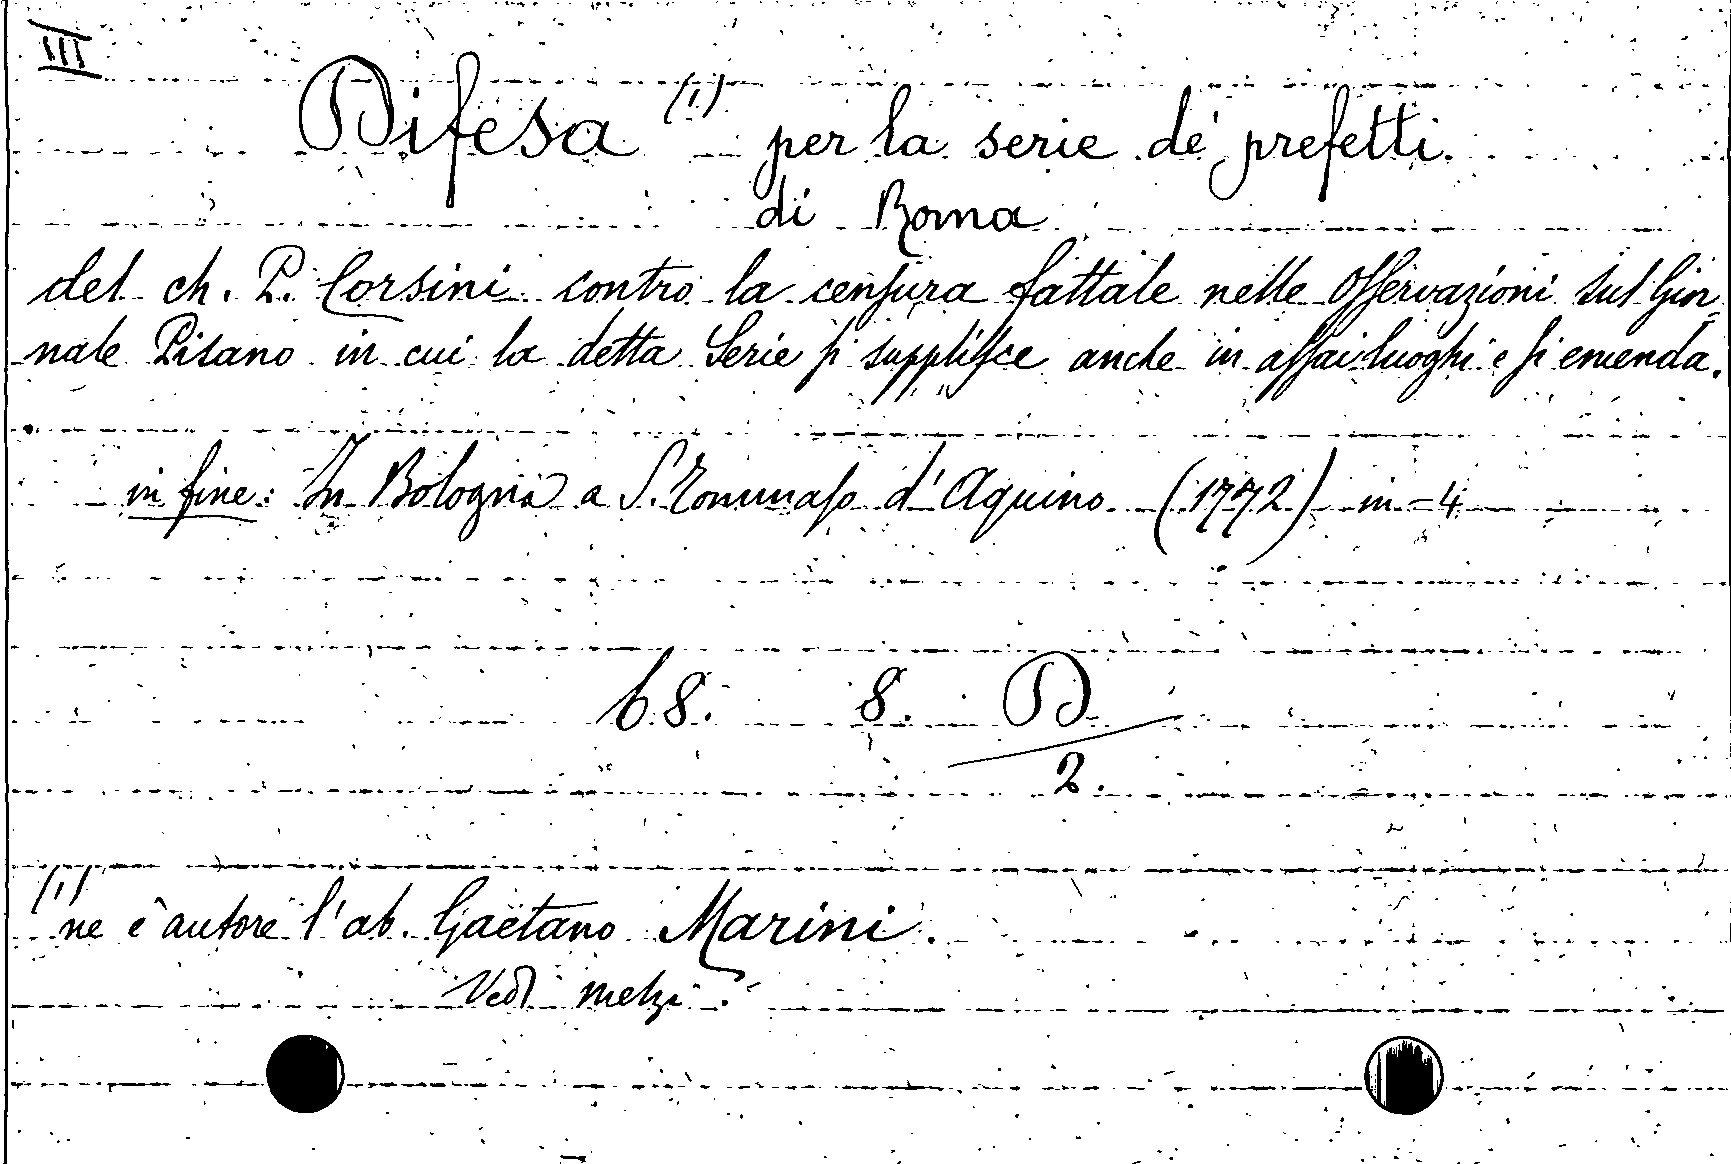 III
Difesa (1) per la serie de' prefetti
di Roma
del ch. P. Corsini contro la cenſura fattale nelle Oſſervazioni sul Gior
nale Pisano in cui la detta Serie ſi suppliſce anche in aſſai luoghi e ſi emenda.
in fine: In Bologna a S. Tommaſo d'Aquino (1772) in-4
68. 8. D
2.
(1) ne è autore l'ab. Gaetano Marini.
Vedi Melzi.